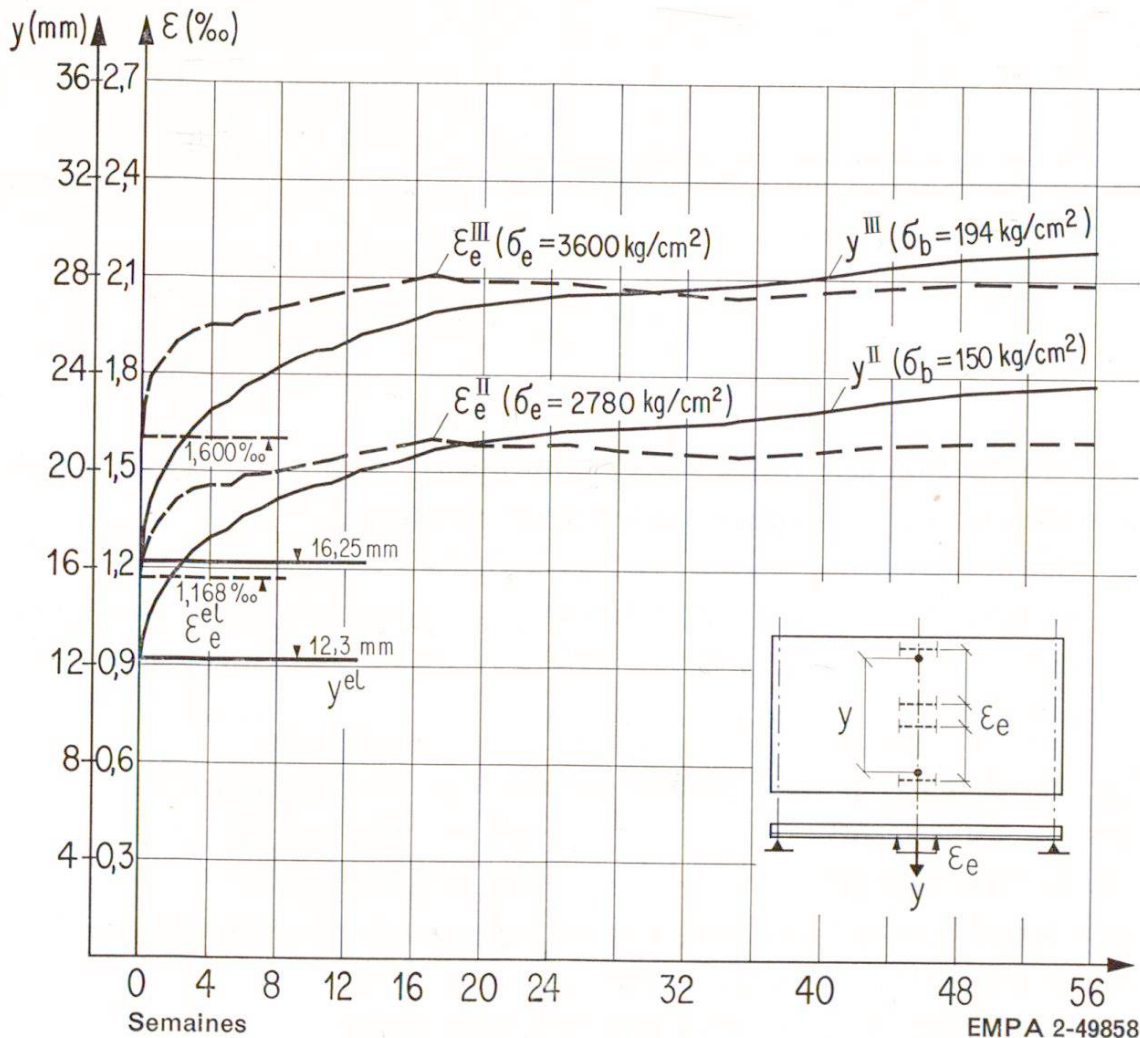 y (mm) ε (‰)
36 2,7
32 2,4
28 2,1
24 1,8
20 1,5
16 1,2
12 0,9
8 0,6
4 0,3
ε_e^III (σ_e = 3600 kg/cm²)
y^III (σ_b = 194 kg/cm²)
ε_e^II (σ_e = 2780 kg/cm²)
y^II (σ_b = 150 kg/cm²)
1,600‰
16,25 mm
1,168‰
ε_e^el
12,3 mm
y^el
y
ε_e
ε_e
y
0 4 8 12 16 20 24 32 40 48 56
Semaines
EMPA 2-49858